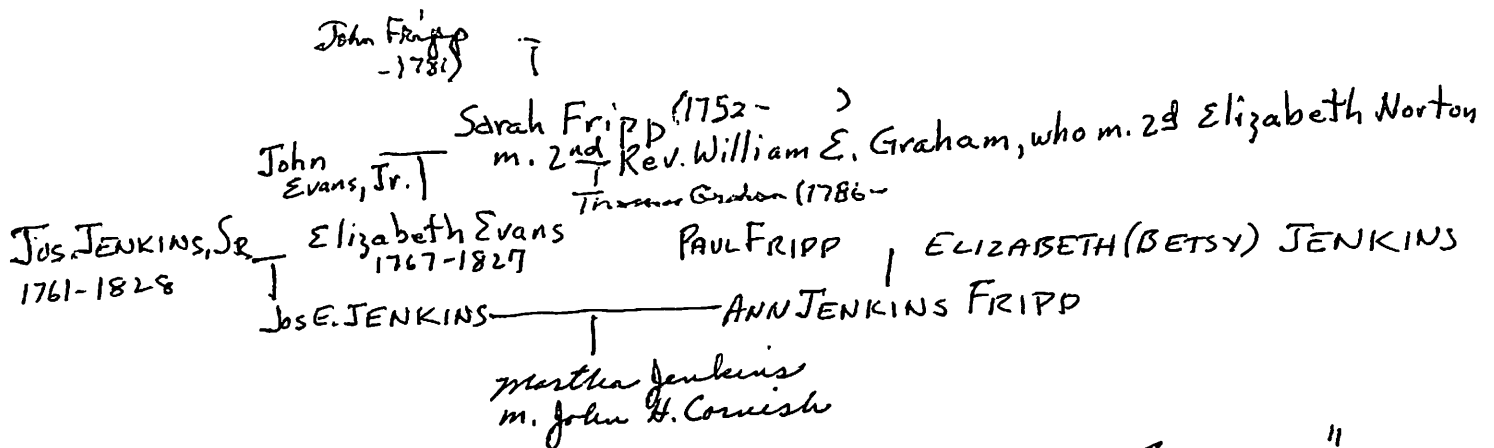 John Fripp
-1781)
Sarah Fripp (1752- )
m. 2nd Rev. William E. Graham, who m. 2d Elizabeth Norton
John
Evans, Jr.
Thomas Graham (1786-
Jos. JENKINS, SR
1761-1828
Elizabeth Evans
1767-1827
PAUL FRIPP
ELIZABETH (BETSY) JENKINS
Jos E. JENKINS
ANN JENKINS FRIPP
Martha Jenkins
m. John H. Cornish
"